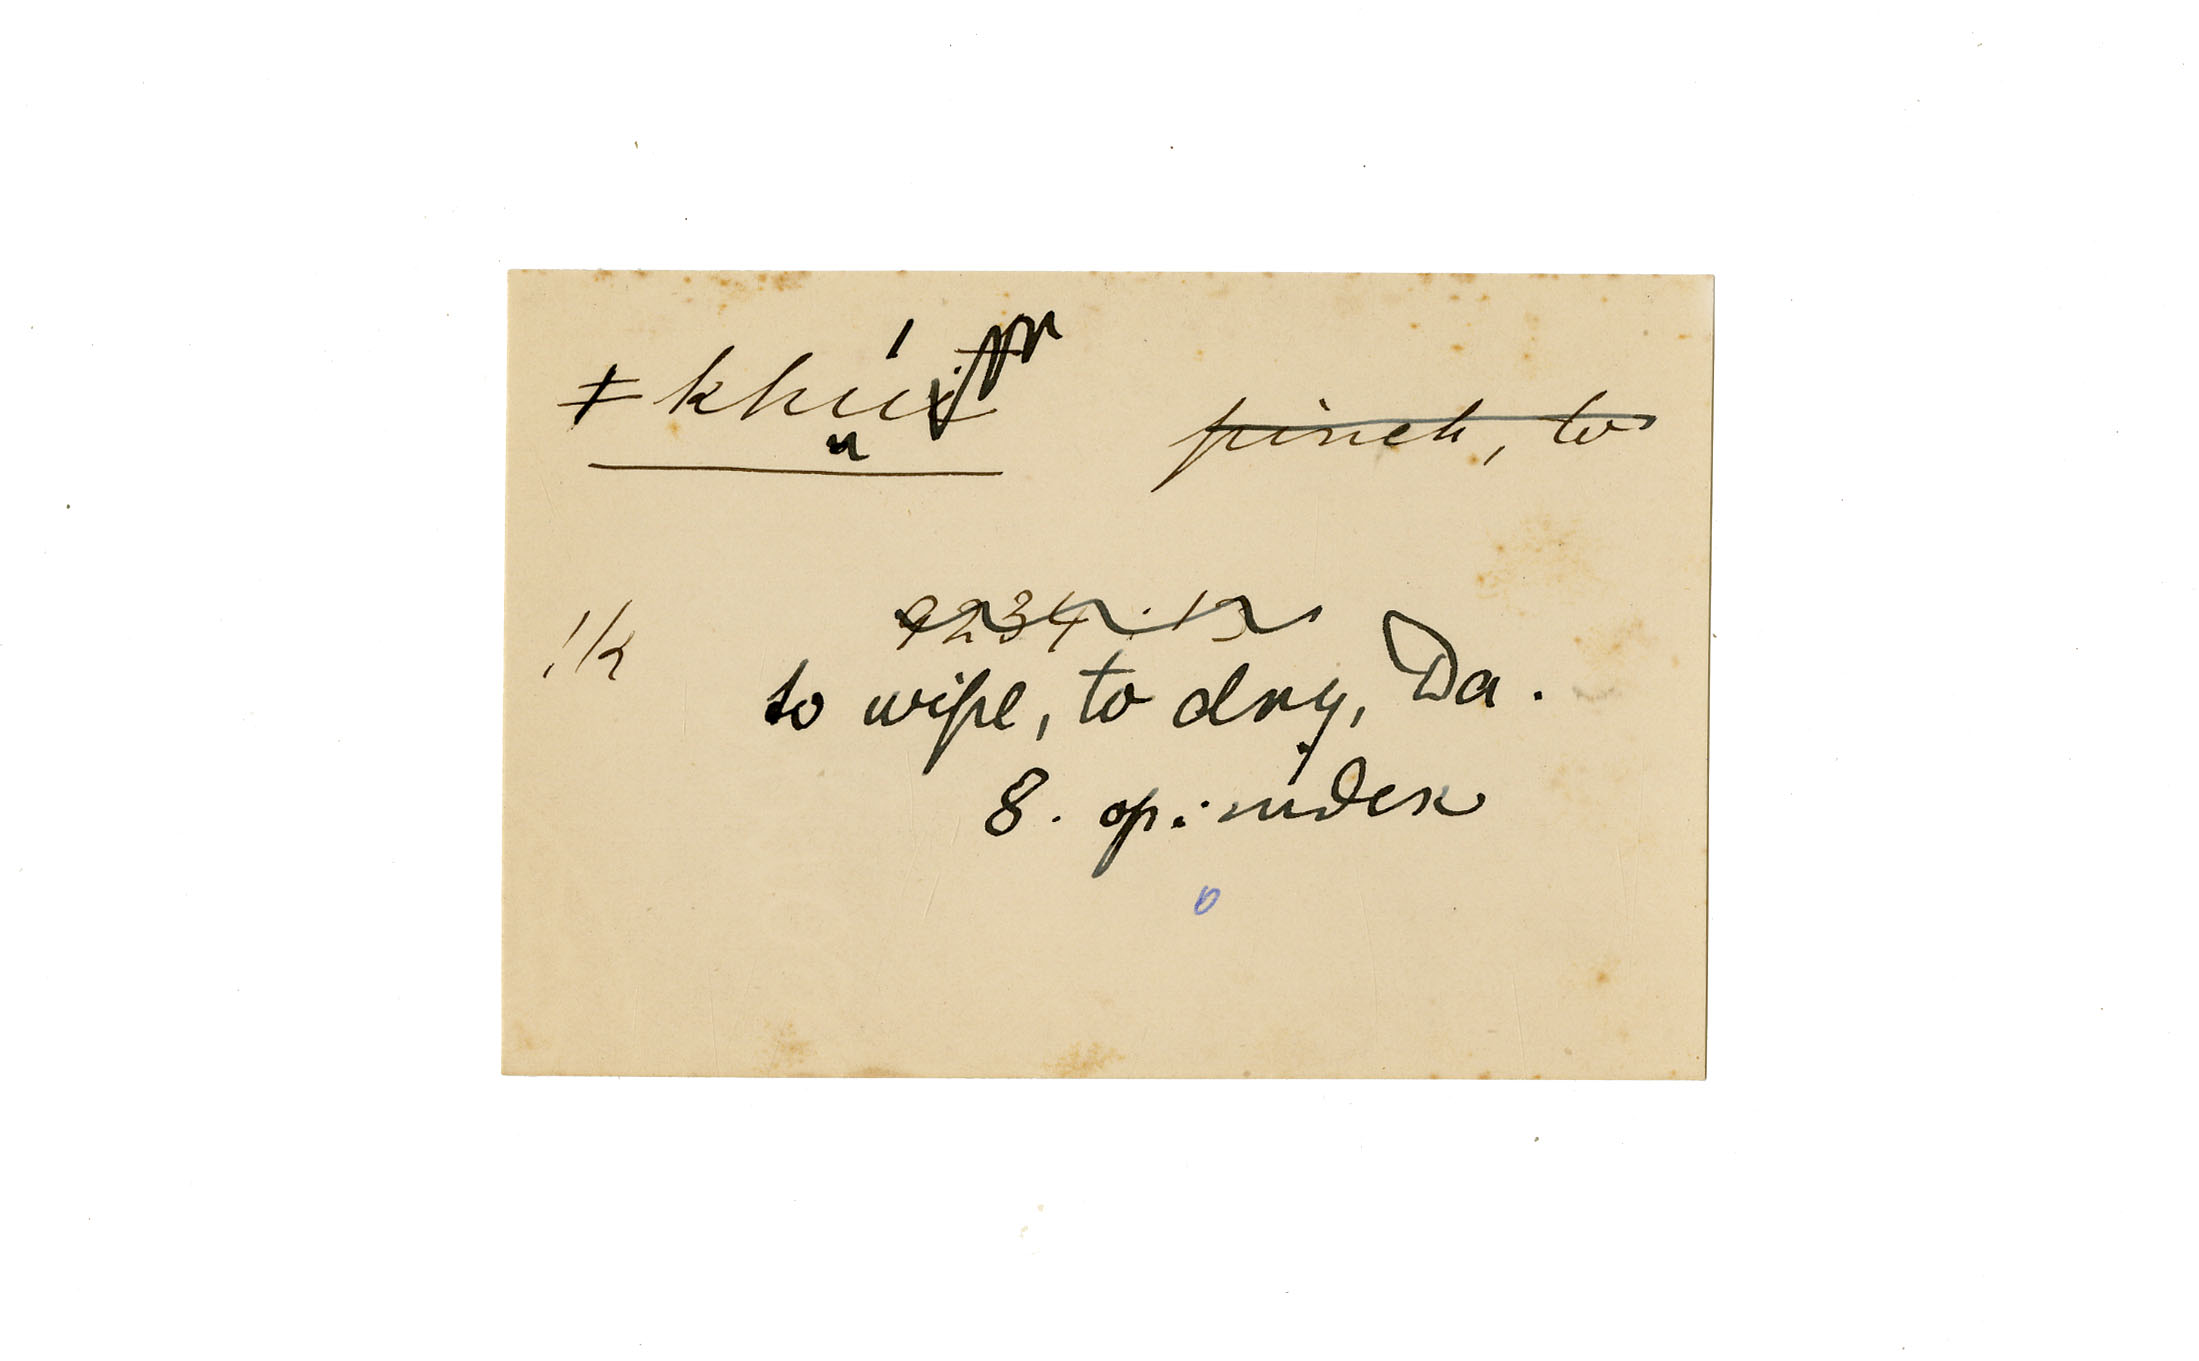 ǂkhúi pinch, to
!k 9234.13
to wipe, to dry, Da.
8. op. index